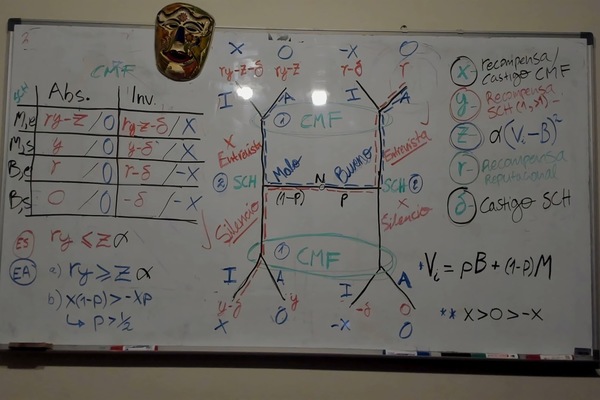 CMF
Abs. Inv.
M,e ry-z/0 ry-z-δ/X
M,s y/0 y-δ/X
B,e r/0 r-δ/-X
B,s 0/0 -δ/-X
ES ry ≤ zα
EA a) ry ≥ zα
b) X(1-p) > -Xp
↳ p > 1/2
X O -X O
ry-z-δ ry-z r-δ r
I A I A
① CMF
X Entrevista
Entrevista X
Malo N Bueno
② SCH (1-p) p SCH ②
Silencio
X Silencio
① CMF
I A I A
y-δ y -δ 0
X O -X O
X recompensa/
Castigo CMF
y Recompensa
z α(Vi-B)²
r- Recompensa
Reputacional
δ- Castigo SCH
*Vi = pB + (1-p)M
** X>0>-X